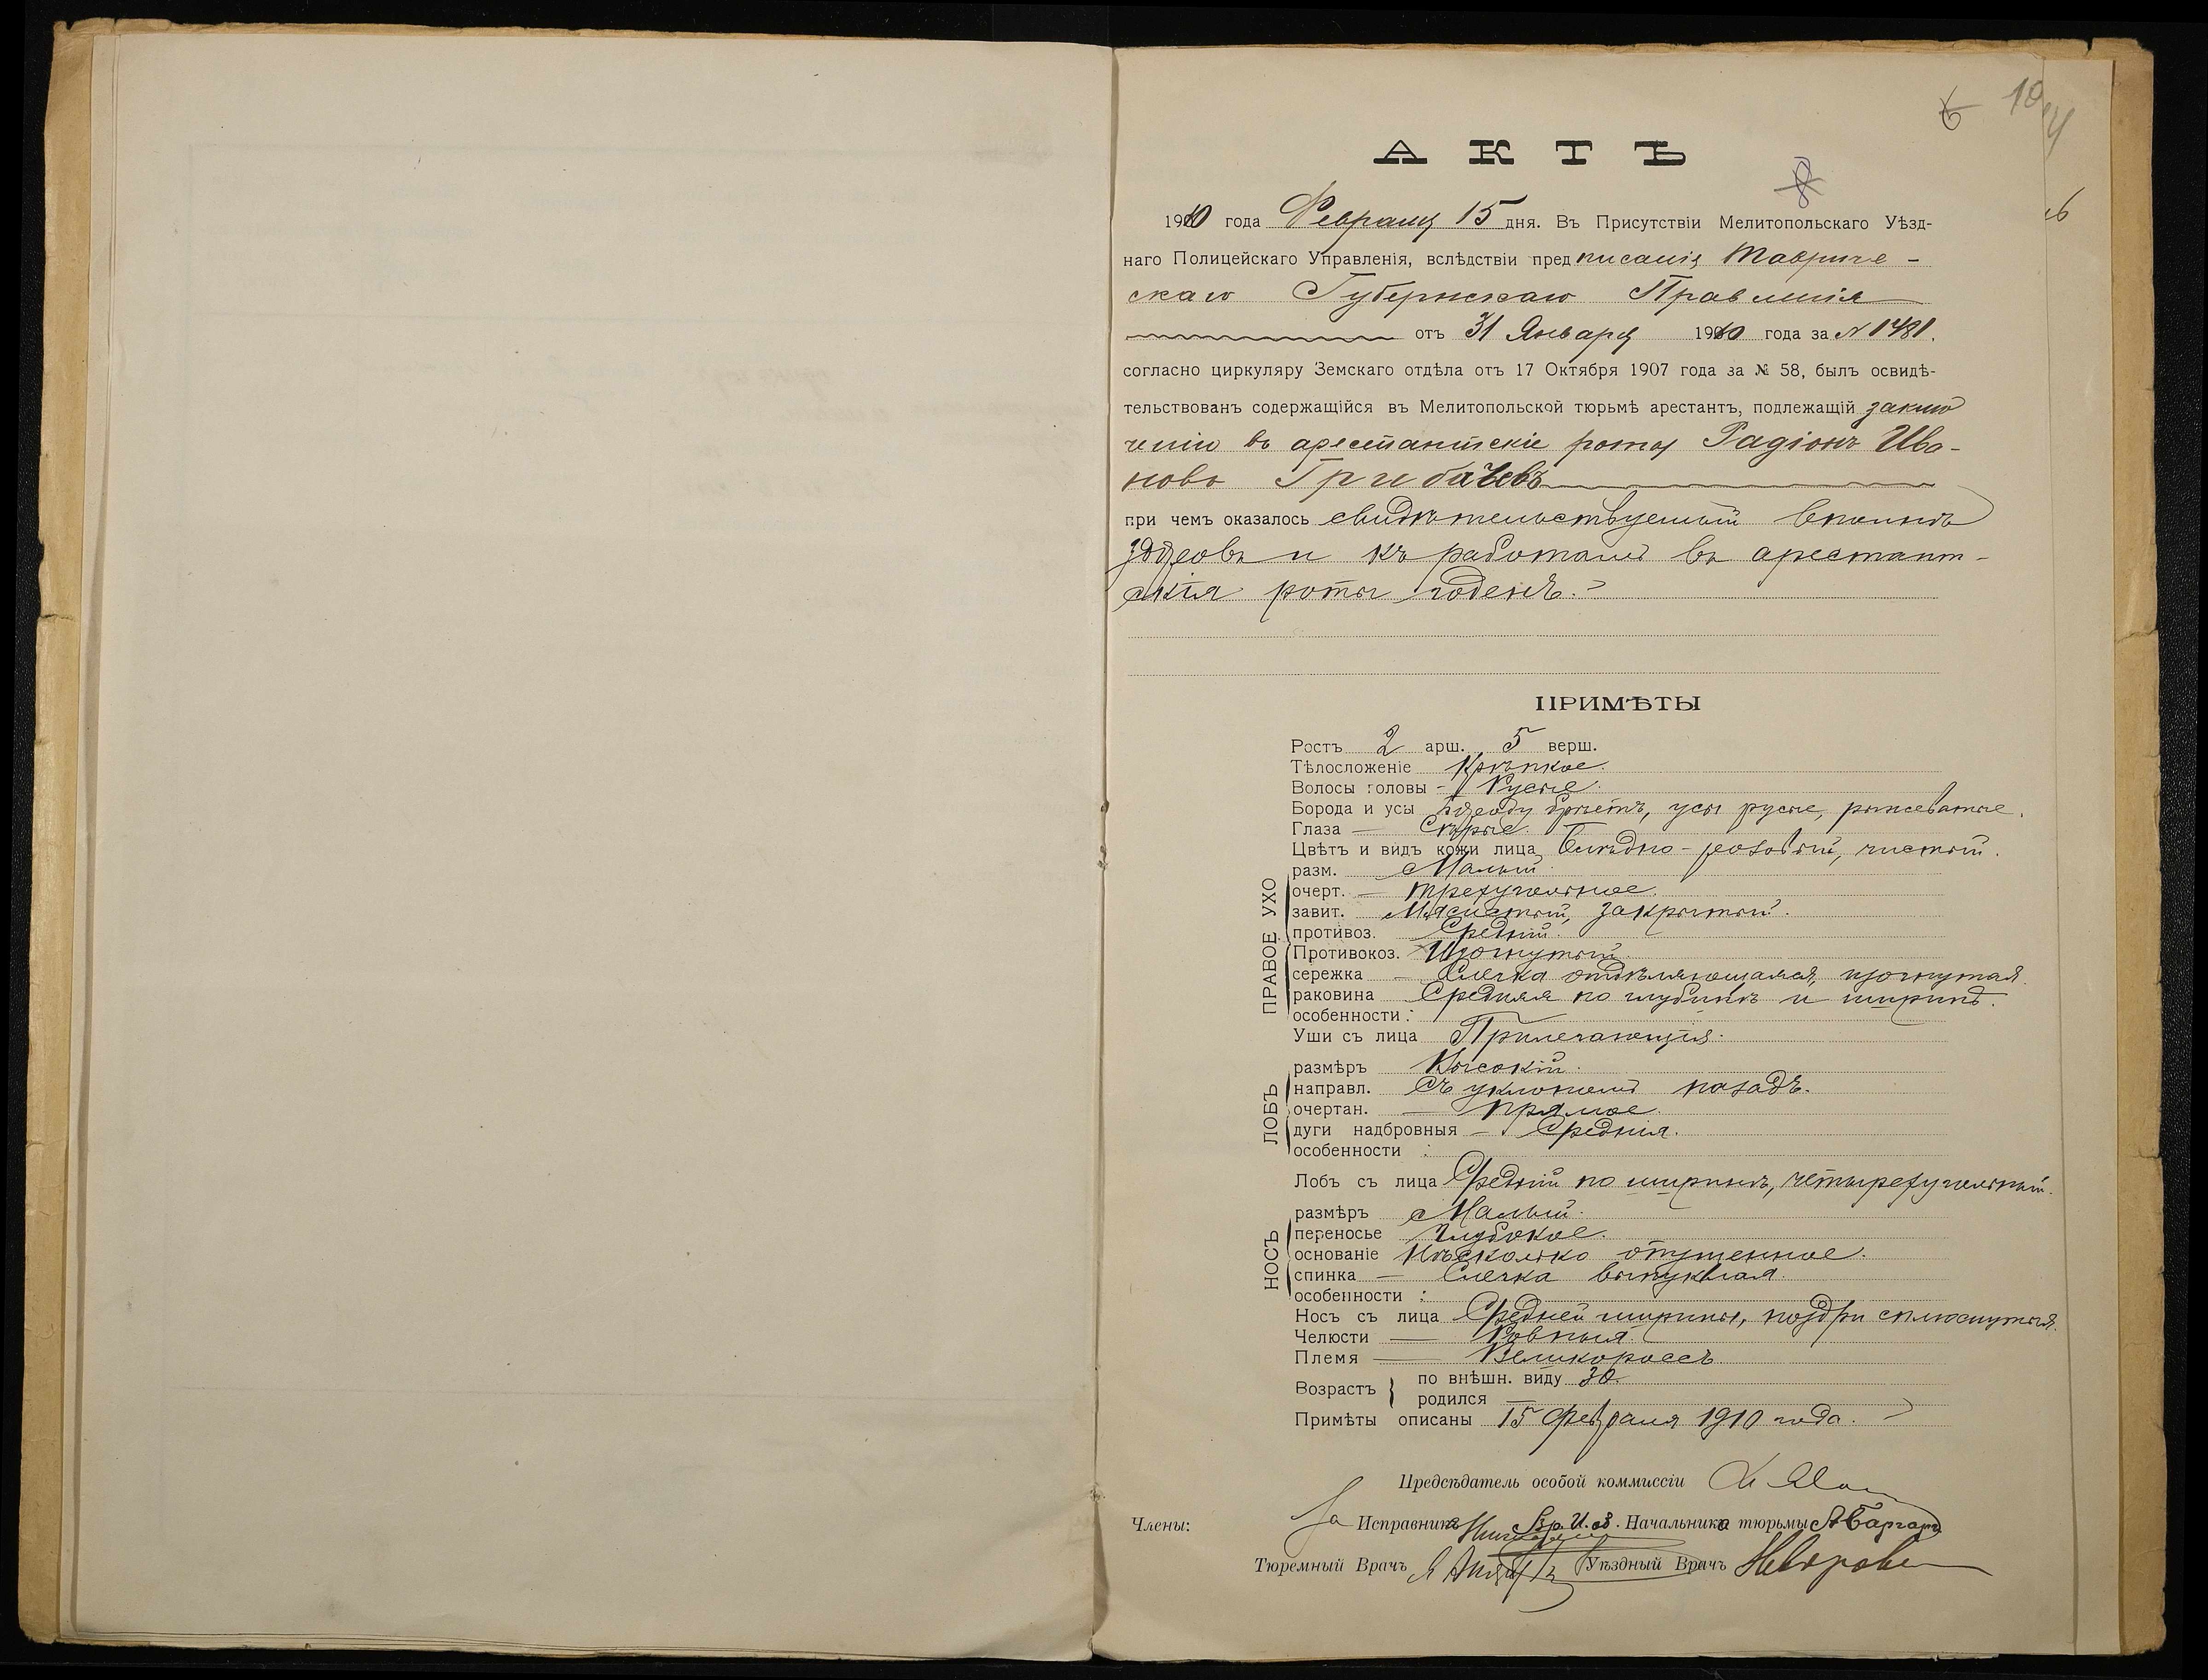 6 10 4
АКТЪ
1910 года Февраля 15 дня. Въ Присутствіи Мелитопольскаго Уѣзд-
наго Полицейскаго Управленія, вслѣдствіи предписанія Тавриче-
скаго Губернскаго Правленія
отъ 31 Января 1910 года за № 1481.
согласно циркуляру Земскаго отдѣла отъ 17 Октября 1907 года за № 58, былъ освидѣ-
тельствованъ содержащійся въ Мелитопольской тюрьмѣ арестантъ, подлежащій заклю
ченію въ арестантскіе роты Радіонъ Ива-
новъ Грибачевъ
при чемъ оказалось свидѣтельствуемый вполнѣ
здоровъ и къ работамъ въ арестант-
скія роты годенъ.
ПРИМѢТЫ
Ростъ 2 арш. 5 верш.
Тѣлосложеніе Крѣпкое.
Волосы головы - Русые.
Борода и усы Бороду брѣетъ, усы русые, рыжеватые.
Глаза — Сѣрые.
Цвѣтъ и видъ кожи лица Блѣдно-розовый, чистый.
ПРАВОЕ УХО
разм. Малый
очерт. — треугольное.
завит. Мясистый, закрытый.
противоз. Средній.
Противокоз. Изогнутый
сережка — Слегка отдѣляющаяся, изогнутая.
раковина Средняя по глубинѣ и ширинѣ.
особенности:
Уши съ лица Прилегающія.
ЛОБЪ
размѣръ Высокій.
направл. Съ уклономъ назадъ.
очертан. — прямое.
дуги надбровныя — Среднія.
особенности :
Лобъ съ лица Средній по ширинѣ, четыреугольный.
НОСЪ
размѣръ Малый.
переносье Глубокое.
основаніе Нѣсколько опущенное.
спинка — Слегка выпуклая.
особенности :
Носъ съ лица Средней ширины, ноздри сплюснутыя.
Челюсти — Ровныя.
Племя — Великороссъ
Возрастъ по внѣшн. виду 30.
родился —
Примѣты описаны 15 февраля 1910 года.
Предсѣдатель особой коммиссіи
Члены: За Исправника И. об. Начальника тюрьмы
Тюремный Врачъ Уѣздный Врачъ